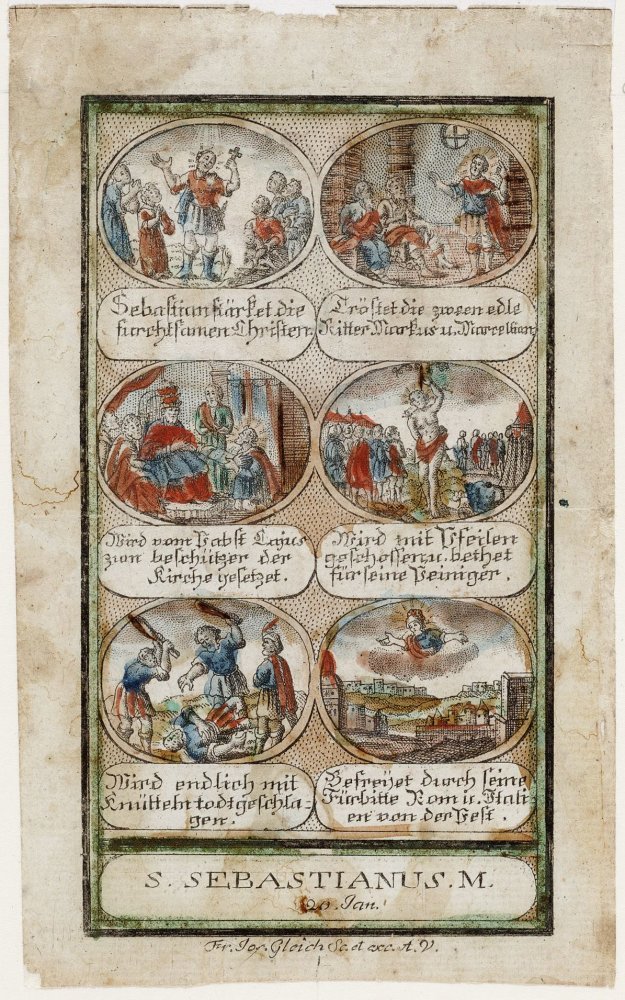 Sebastian stärket die
furchtsamen Christen.
Tröstet die zween edle
Ritter Markus u. Marcellian
Wird vom Pabst Cajus
zum beschützer der
Kirche gesetzet.
Wird mit Pfeilen
geschossen, u. bethet
für seine Peiniger.
Wird endlich mit
Knütteln todtgeschla-
gen.
Befreÿet durch seine
Fürbitte Rom u. Itali-
en von der Pest.
S. SEBASTIANUS. M.
20. Jan.
Fr. Jos. Gleich Sc. et exc. A. V.